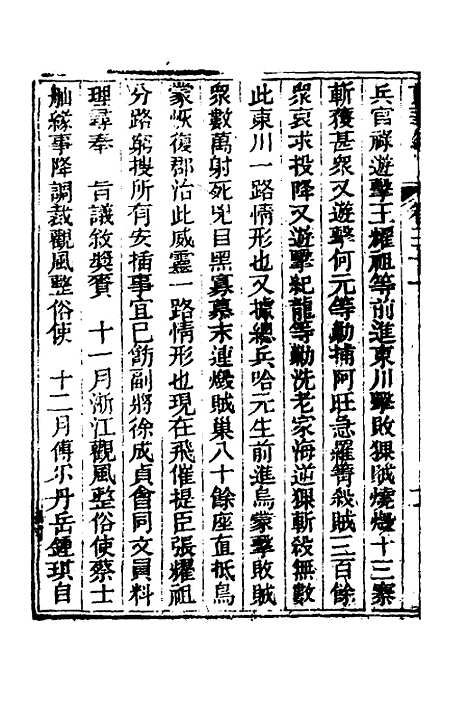 兵官祿遊擊王耀祖等前進東川擊敗猓賊燒燬十三寨
斬獲甚衆又遊擊何元等勦捕阿旺急羅箐殺賊三百餘
衆哀求投降又遊擊紀龍等勦洗老家海逆猓斬殺無數
此東川一路情形也又據總兵哈元生前進烏蒙擊敗賊
衆數萬射死兇目黑寡暮末連燬賊巢八十餘座直抵烏
蒙恢復郡治此威靈一路情形也現在飛催提臣張耀祖
分路窮搜所有安插事宜已飭副將徐成貞會同文員料
理尋奉 旨議敘獎賚 十一月浙江觀風整俗使蔡士
舢緣事降調裁觀風整俗使 十二月傅尔丹岳鍾琪自